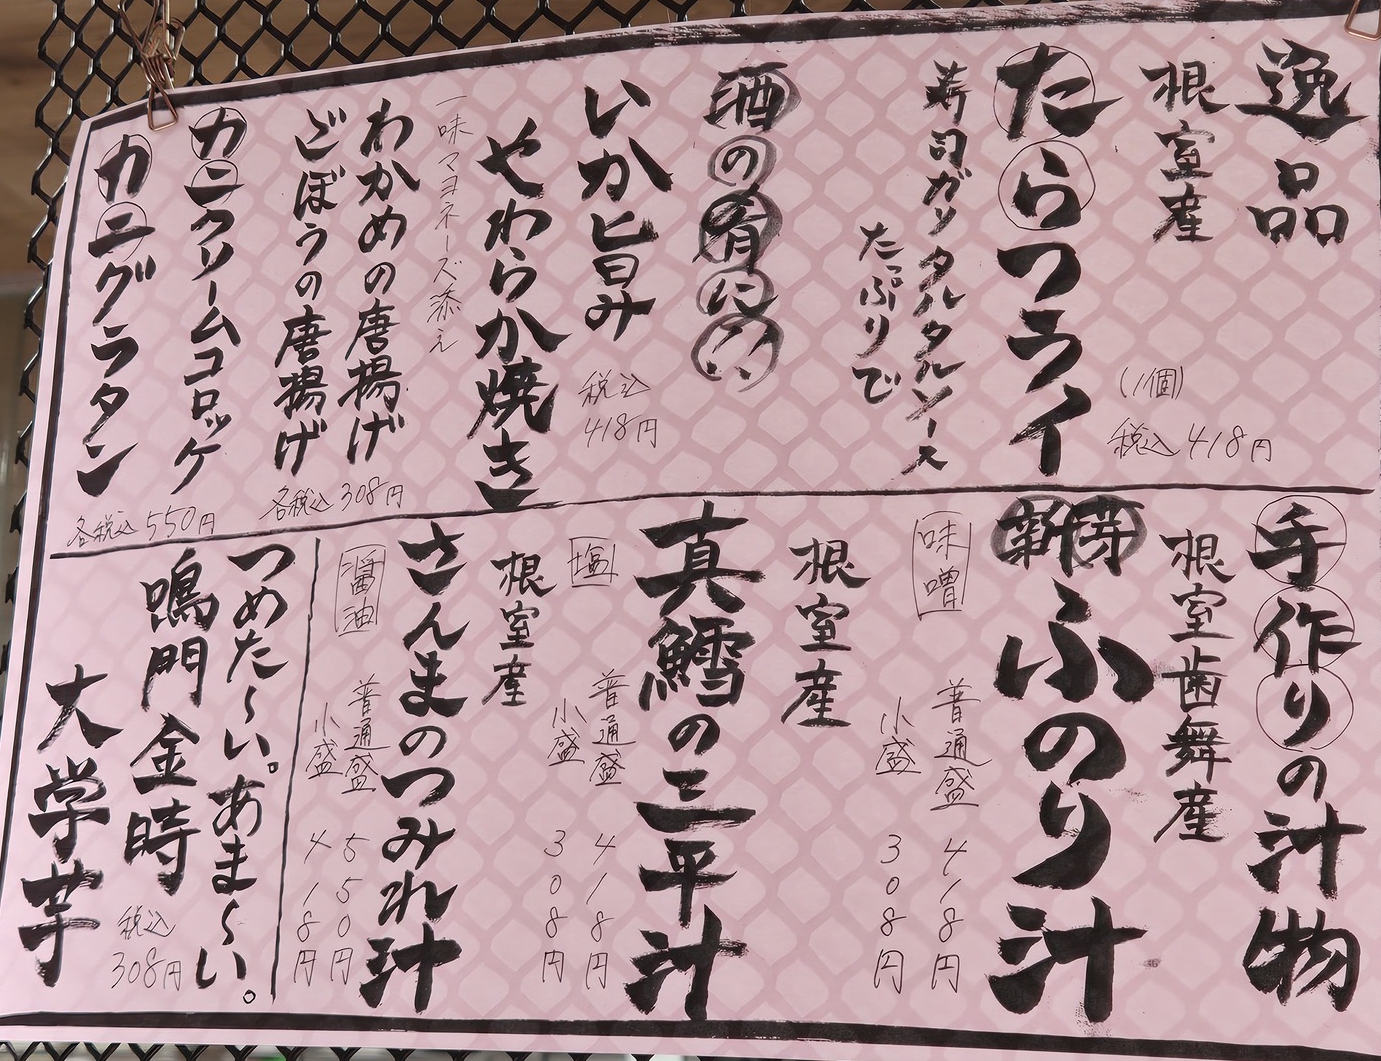 逸品
根室産
たらフライ
(1個)
税込418円
寿司ガリタルタルソース
たっぷりで
酒の肴に
いか旨み
やわらか焼き
税込
418円
一味マヨネーズ添え
わかめの唐揚げ
ごぼうの唐揚げ
各税込308円
カニクリームコロッケ
カニグラタン
各税込550円
手作りの汁物
根室歯舞産
新芽
ふのり汁
味噌
普通盛 418円
小盛 308円
根室産
真鱈の三平汁
塩
普通盛 418円
小盛 308円
根室産
さんまのつみれ汁
醤油
普通盛 550円
小盛 418円
つめた〜い。あま〜い。
鳴門金時
大学芋
税込
308円